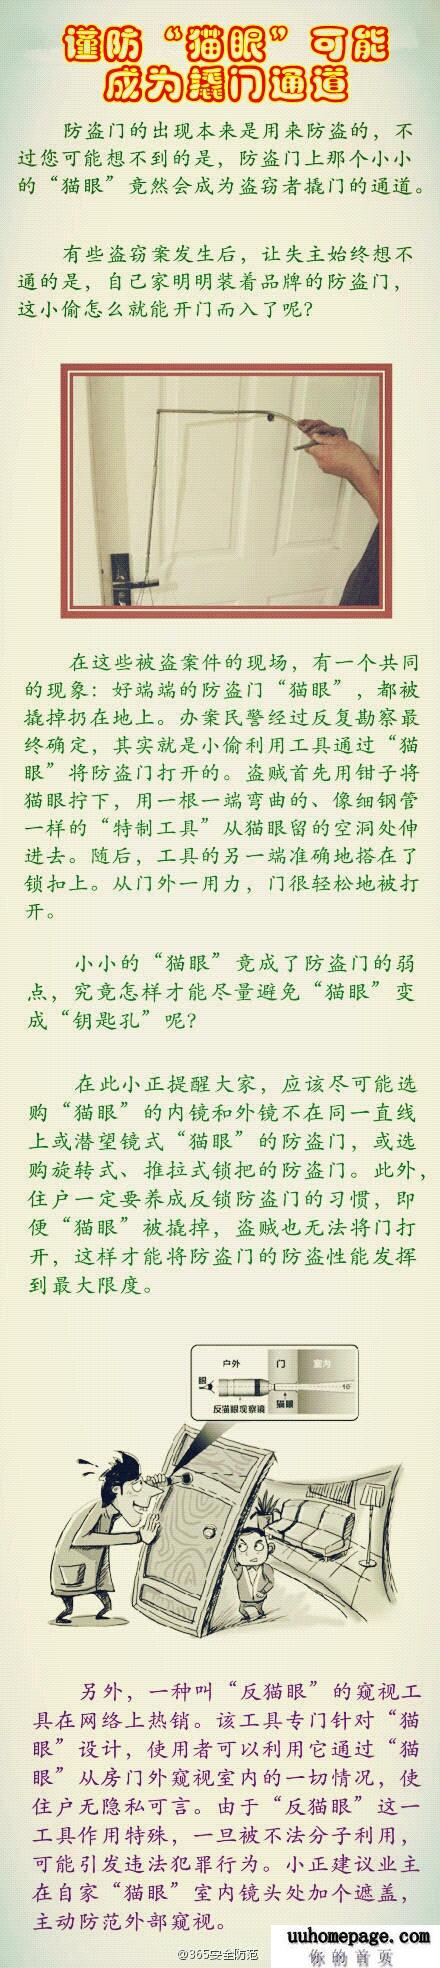 谨防“猫眼”可能
成为撬门通道
防盗门的出现本来是用来防盗的，不
过您可能想不到的是，防盗门上那个小小
的“猫眼”竟然会成为盗窃者撬门的通道。
有些盗窃案发生后，让失主始终想不
通的是，自己家明明装着品牌的防盗门，
这小偷怎么就能开门而入了呢？
在这些被盗案件的现场，有一个共同
的现象：好端端的防盗门“猫眼”，都被
撬掉扔在地上。办案民警经过反复勘察最
终确定，其实就是小偷利用工具通过“猫
眼”将防盗门打开的。盗贼首先用钳子将
猫眼拧下，用一根一端弯曲的、像细钢管
一样的“特制工具”从猫眼留的空洞处伸
进去。随后，工具的另一端准确地搭在了
锁扣上。从门外一用力，门很轻松地被打
开。
小小的“猫眼”竟成了防盗门的弱
点，究竟怎样才能尽量避免“猫眼”变
成“钥匙孔”呢？
在此小正提醒大家，应该尽可能选
购“猫眼”的内镜和外镜不在同一直线
上或潜望镜式“猫眼”的防盗门，或选
购旋转式、推拉式锁把的防盗门。此外，
住户一定要养成反锁防盗门的习惯，即
便“猫眼”被撬掉，盗贼也无法将门打
开，这样才能将防盗门的防盗性能发挥
到最大限度。
户外 门 室内
眼 10°
反猫眼观察镜 猫眼
另外，一种叫“反猫眼”的窥视工
具在网络上热销。该工具专门针对“猫
眼”设计，使用者可以利用它通过“猫
眼”从房门外窥视室内的一切情况，使
住户无隐私可言。由于“反猫眼”这一
工具作用特殊，一旦被不法分子利用，
可能引发违法犯罪行为。小正建议业主
在自家“猫眼”室内镜头处加个遮盖，
主动防范外部窥视。
@365安全防范
uuhomepage.com
你的首页